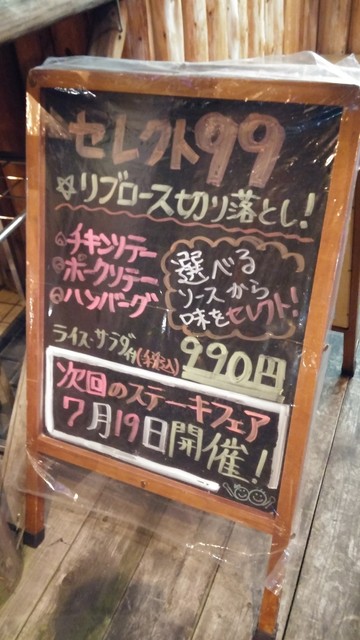 セレクト99
☆リブロース切り落とし!
チキンソテー
ポークソテー
ハンバーグ
選べる
ソースから
味をセレクト!
ライス・サラダ付(税込)
990円
次回のステーキフェア
7月19日開催!